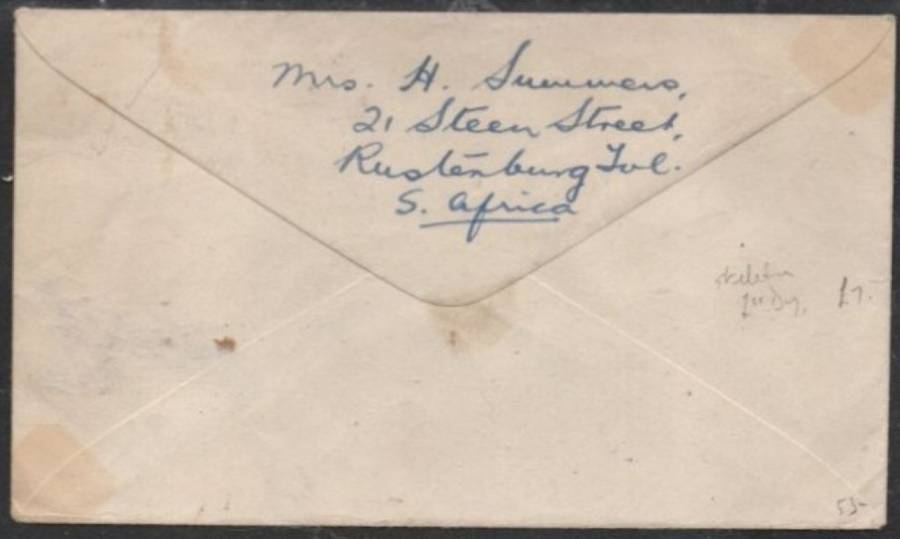 Mrs. H. Summers,
21 Steen Street,
Rustenburg Tvl.
S. Africa
skeleton
1st Day, £7.